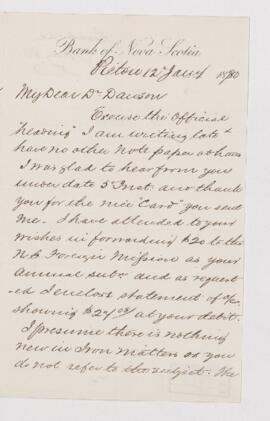 Bank of Nova Scotia
Pictou 12 Jany 1880
My Dear Dr Dawson
Excuse the Official
"heading" I am writing late &
have no other Note paper at hand
I was glad to hear from you
under date 5th Inst. and thank
you for the nice "Card" you sent
me. I have attended to your
wishes in forwarding $20 to the
Foreign Mission as your
Annual subn. and as request-
ed I enclose statement of a/c
showing at your debit.
I presume there is nothing
new in Iron matters as you
do not refer to the subject. We